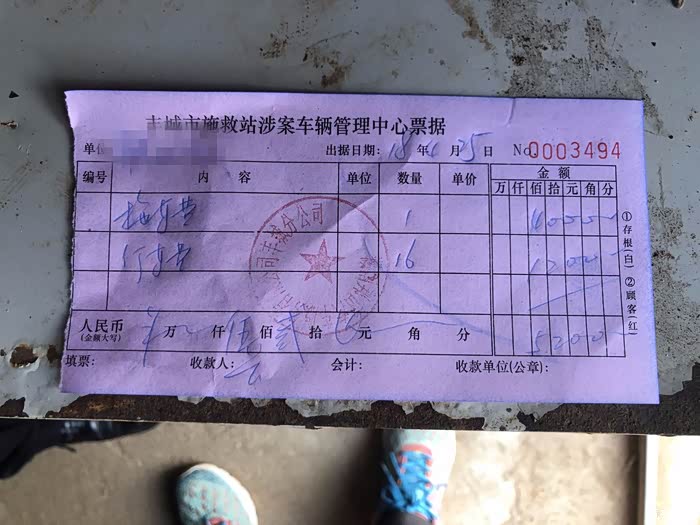 丰城市施救站涉案车辆管理中心票据
单位
出据日期: 18 年 月 25 日 No 0003494
编号 内容 单位 数量 单价 金额
万 仟 佰 拾 元 角 分
拖车费 1 40000
停车费 16 12000
人民币 (金额大写) 万 仟 伍 佰 贰 拾 元 角 分 52000
填票: 收款人: 会计: 收款单位(公章):
①存根(白) ②顾客(红)
公司丰城分公司